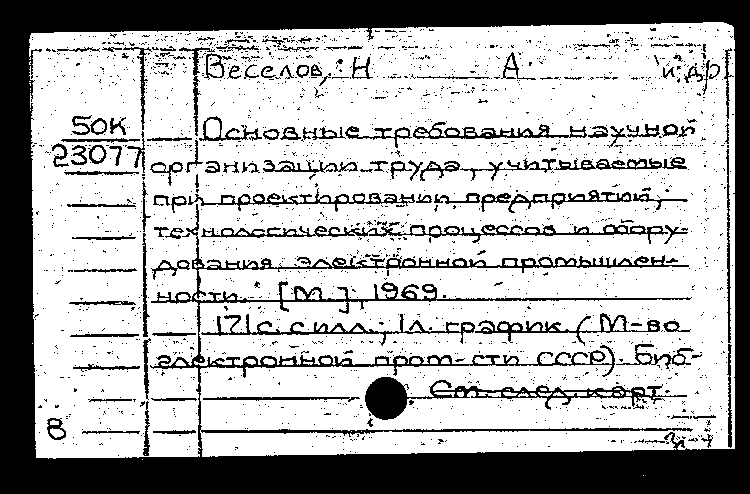 Веселов, Н А и др
50К
23077
Основные требования научной
организации труда, учитываемые
при проектировании предприятий,
технологических процессов и обору-
дования электронной промышлен-
ности. [М.], 1969.
171 с. с илл.; 1 л. график. (М-во
электронной пром-сти СССР). Биб-
См. след. карт.
В